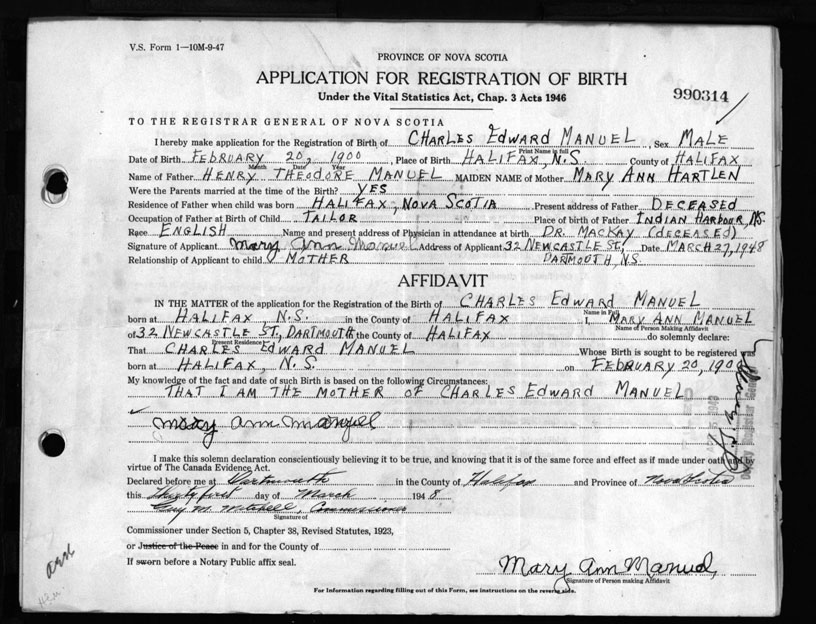 V.S. Form 1—10M-9-47
PROVINCE OF NOVA SCOTIA
APPLICATION FOR REGISTRATION OF BIRTH
Under the Vital Statistics Act, Chap. 3 Acts 1946
990314
TO THE REGISTRAR GENERAL OF NOVA SCOTIA
I hereby make application for the Registration of Birth of CHARLES EDWARD MANUEL, Sex MALE
Print Name in full
Date of Birth FEBRUARY 20, 1900, Place of Birth HALIFAX, N.S. County of HALIFAX
Month Date Year
Name of Father HENRY THEODORE MANUEL MAIDEN NAME of Mother MARY ANN HARTLEN
Were the Parents married at the time of the Birth? YES
Residence of Father when child was born HALIFAX, NOVA SCOTIA Present address of Father DECEASED
Occupation of Father at Birth of Child TAILOR Place of birth of Father INDIAN HARBOUR, N.S.
Race ENGLISH Name and present address of Physician in attendance at birth DR. MACKAY (DECEASED)
Signature of Applicant Mary Ann Manuel Address of Applicant 32 NEWCASTLE ST., Date MARCH 27, 1948
Relationship of Applicant to child MOTHER DARTMOUTH, N.S.
AFFIDAVIT
IN THE MATTER of the application for the Registration of the Birth of CHARLES EDWARD MANUEL
Name in Full
born at HALIFAX, N.S. in the County of HALIFAX I, MARY ANN MANUEL
Name of Person Making Affidavit
of 32 NEWCASTLE ST., DARTMOUTH of COUNTY of HALIFAX do solemnly declare:
Present Residence
That CHARLES EDWARD MANUEL Whose Birth is sought to be registered was
born at HALIFAX, N.S. on FEBRUARY 20, 1900
My knowledge of the fact and date of such Birth is based on the following Circumstances:
THAT I AM THE MOTHER OF CHARLES EDWARD MANUEL
Mary Ann Manuel
I make this solemn declaration conscientiously believing it to be true, and knowing that it is of the same force and effect as if made under oath and by
virtue of The Canada Evidence Act.
Declared before me at Dartmouth in the County of Halifax and Province of Nova Scotia
this Thirty first day of March 1948.
Guy M. Mitchell, Commissioner
Signature of
Commissioner under Section 5, Chapter 38, Revised Statutes, 1923,
or Justice of the Peace in and for the County of
If sworn before a Notary Public affix seal.
Mary Ann Manuel
Signature of Person making Affidavit
For Information regarding filling out of this Form, see instructions on the reverse side.